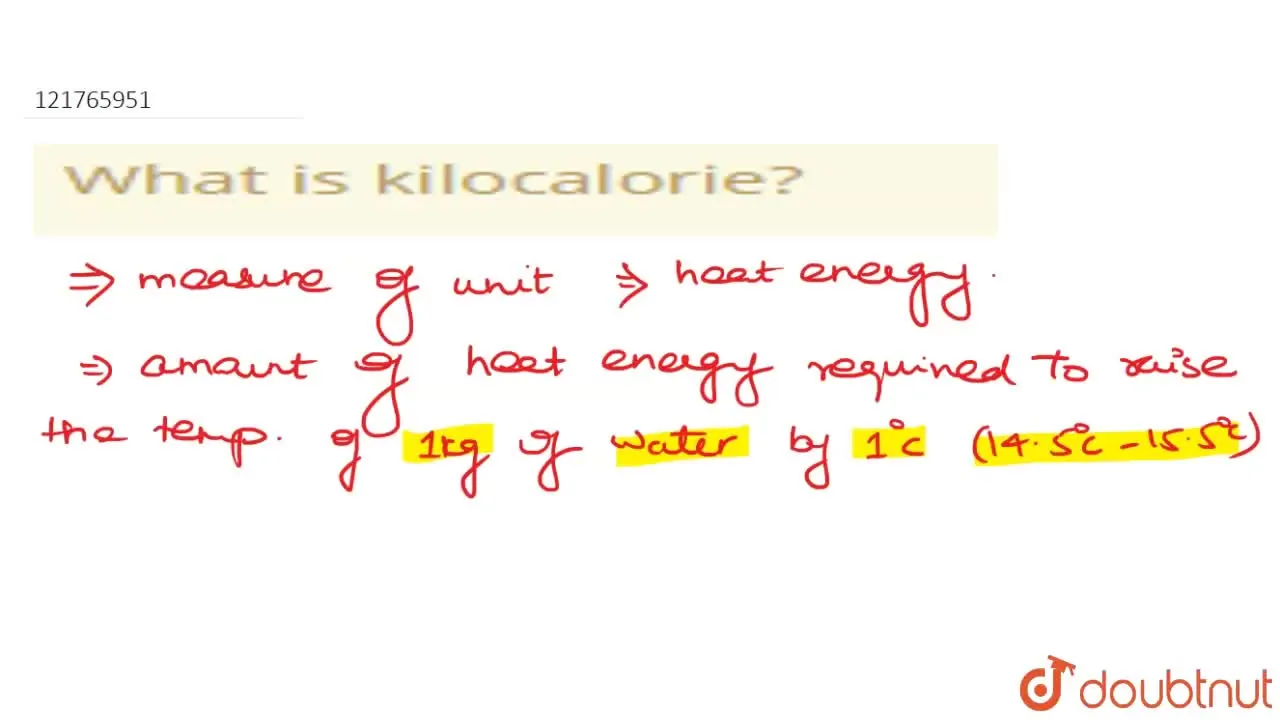 121765951
What is kilocalorie?
⇒ measure of unit ⇒ heat energy.
⇒ amount of heat energy required To raise
the temp. of 1kg of water by 1°C (14.5°C - 15.5°C)
doubtnut